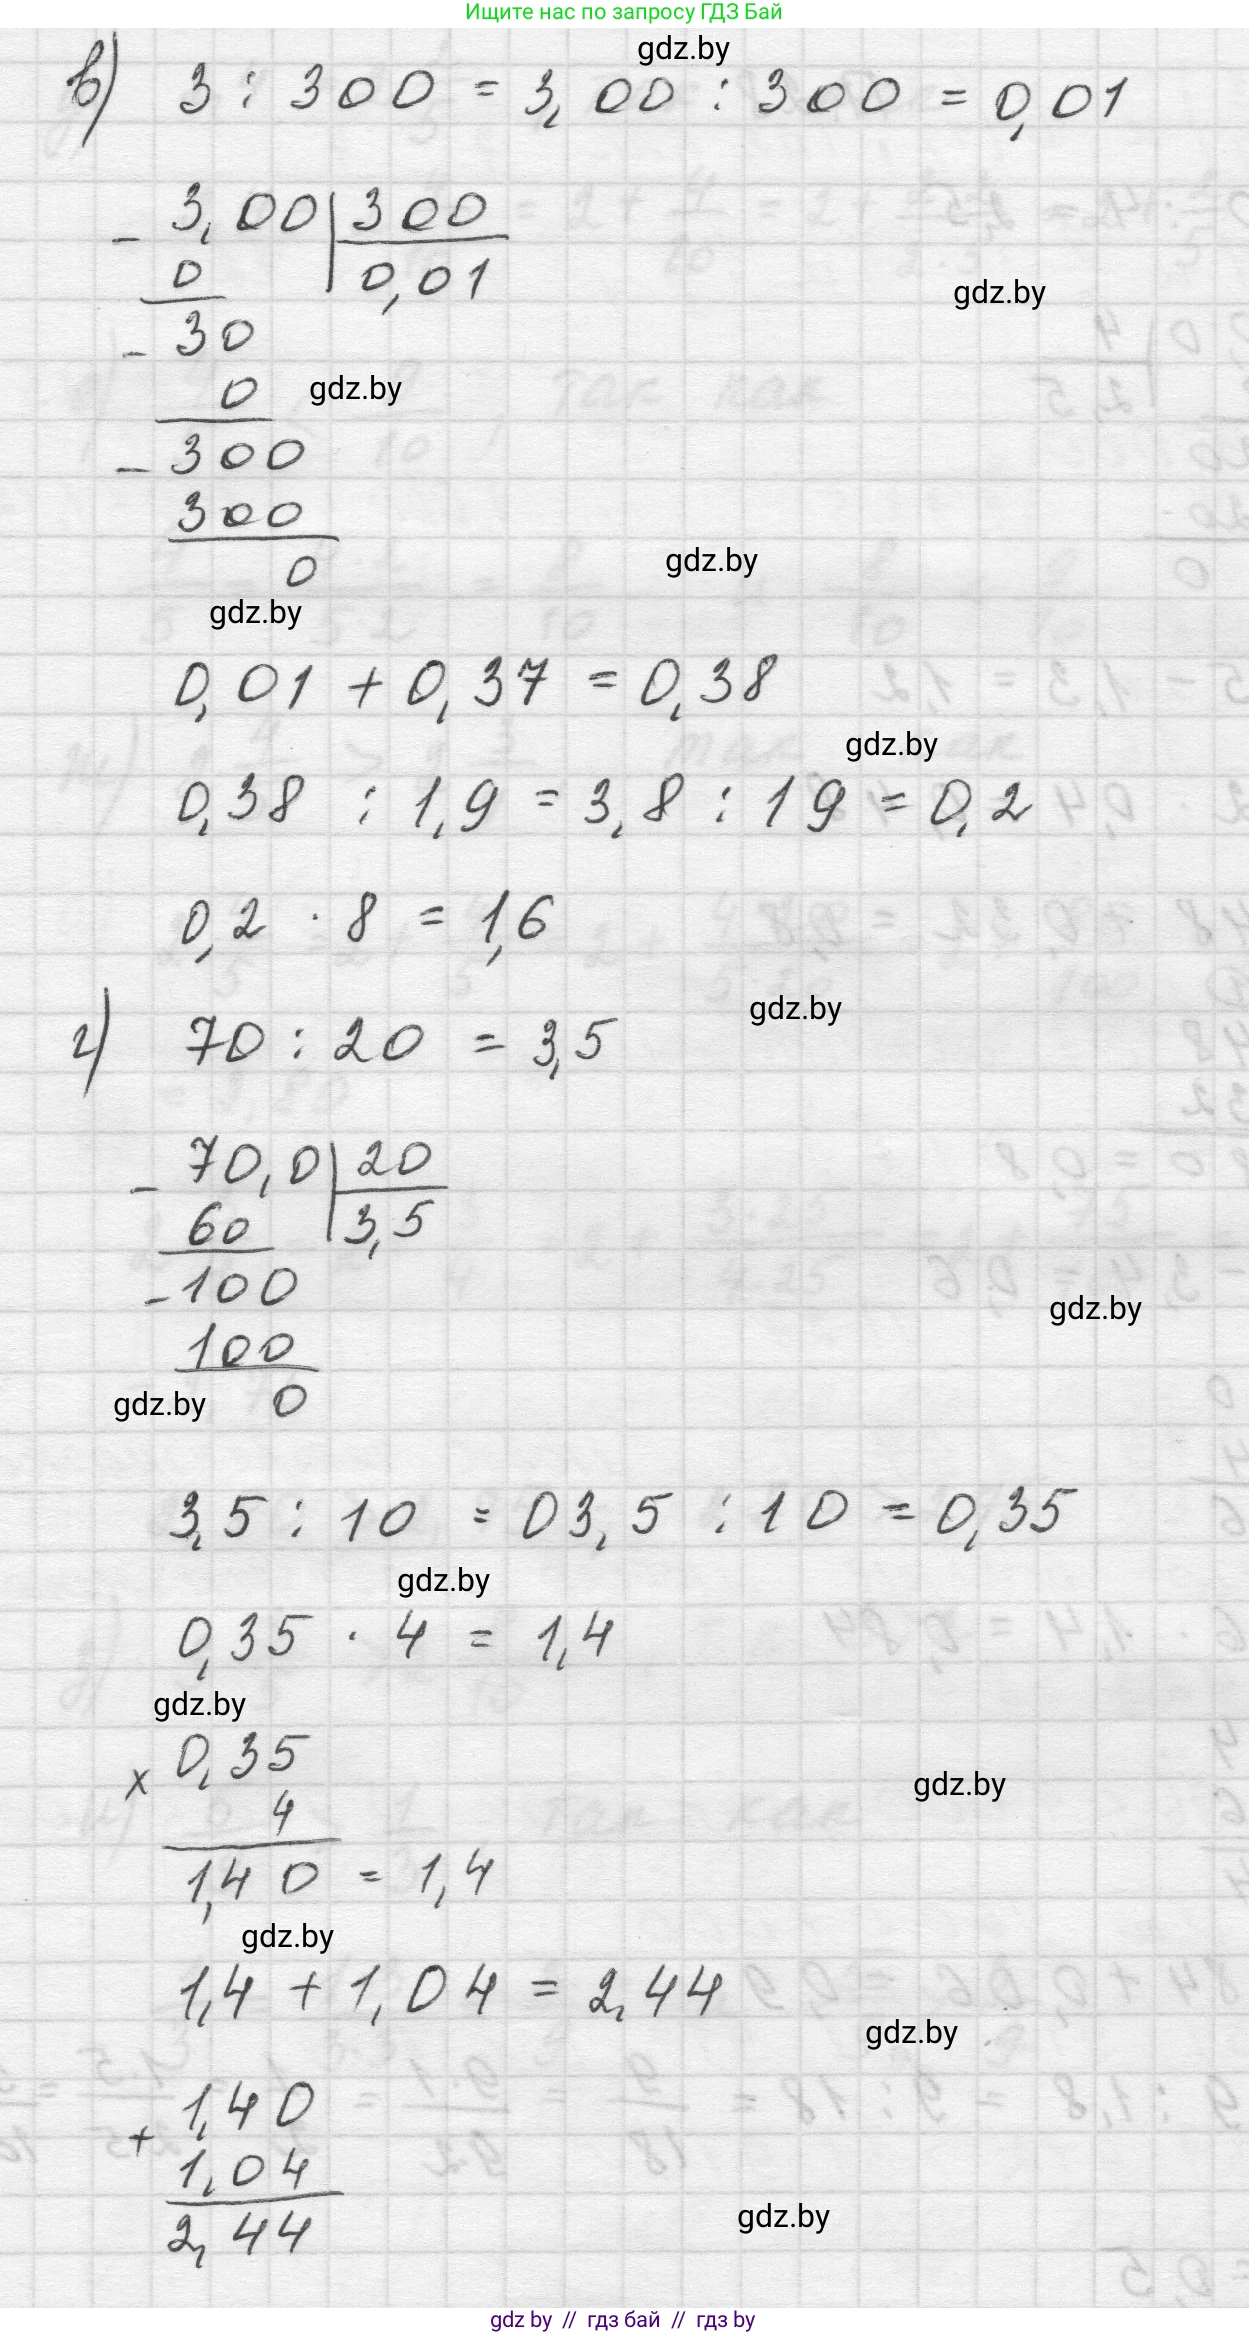 Ищите нас по запросу ГДЗ Бай
gdz.by
в) 3 : 300 = 3,00 : 300 = 0,01
- 3,00 | 300
0 | 0,01
gdz.by
- 30
0
gdz.by
- 300
300
0
gdz.by
gdz.by
0,01 + 0,37 = 0,38
gdz.by
0,38 : 1,9 = 3,8 : 19 = 0,2
0,2 · 8 = 1,6
gdz.by
г) 70 : 20 = 3,5
- 70,0 | 20
60 | 3,5
- 100
gdz.by
100
0
gdz.by
3,5 : 10 = 03,5 : 10 = 0,35
gdz.by
0,35 · 4 = 1,4
gdz.by
x 0,35
gdz.by
4
1,40 = 1,4
gdz.by
1,4 + 1,04 = 2,44
gdz.by
+ 1,40
1,04
2,44
gdz.by
gdz by // гдз бай // гдз by